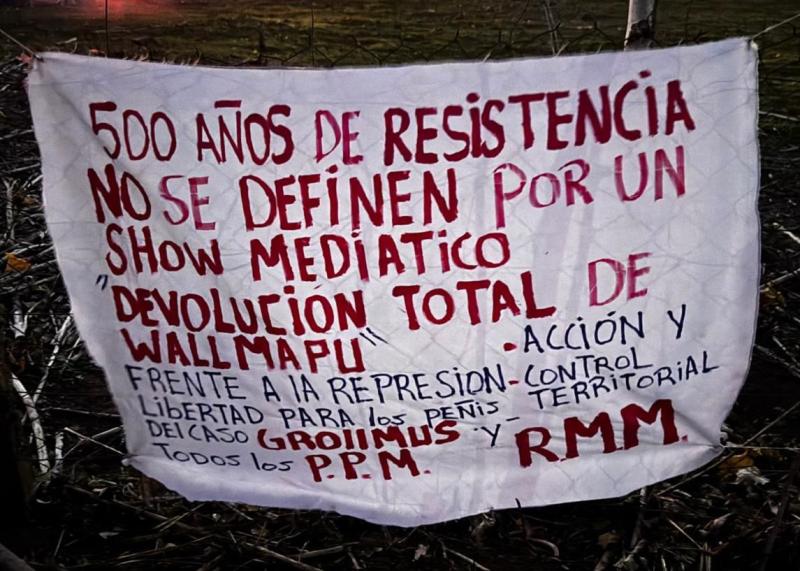 500 AÑOS DE RESiSTENCiA
NO SE DEFiNEN POR UN
SHOW MEDiATiCO
"DEVOLUCIÓN TOTAL DE
WALLMAPU"
•ACCIÓN Y
FRENTE A lA REPRESION-CONTROL
TERRiTORiAL
LibERTAD PARA los PEÑiS
DEl CASO GROllMUS Y
TODOS los P.P.M.
R.M.M.